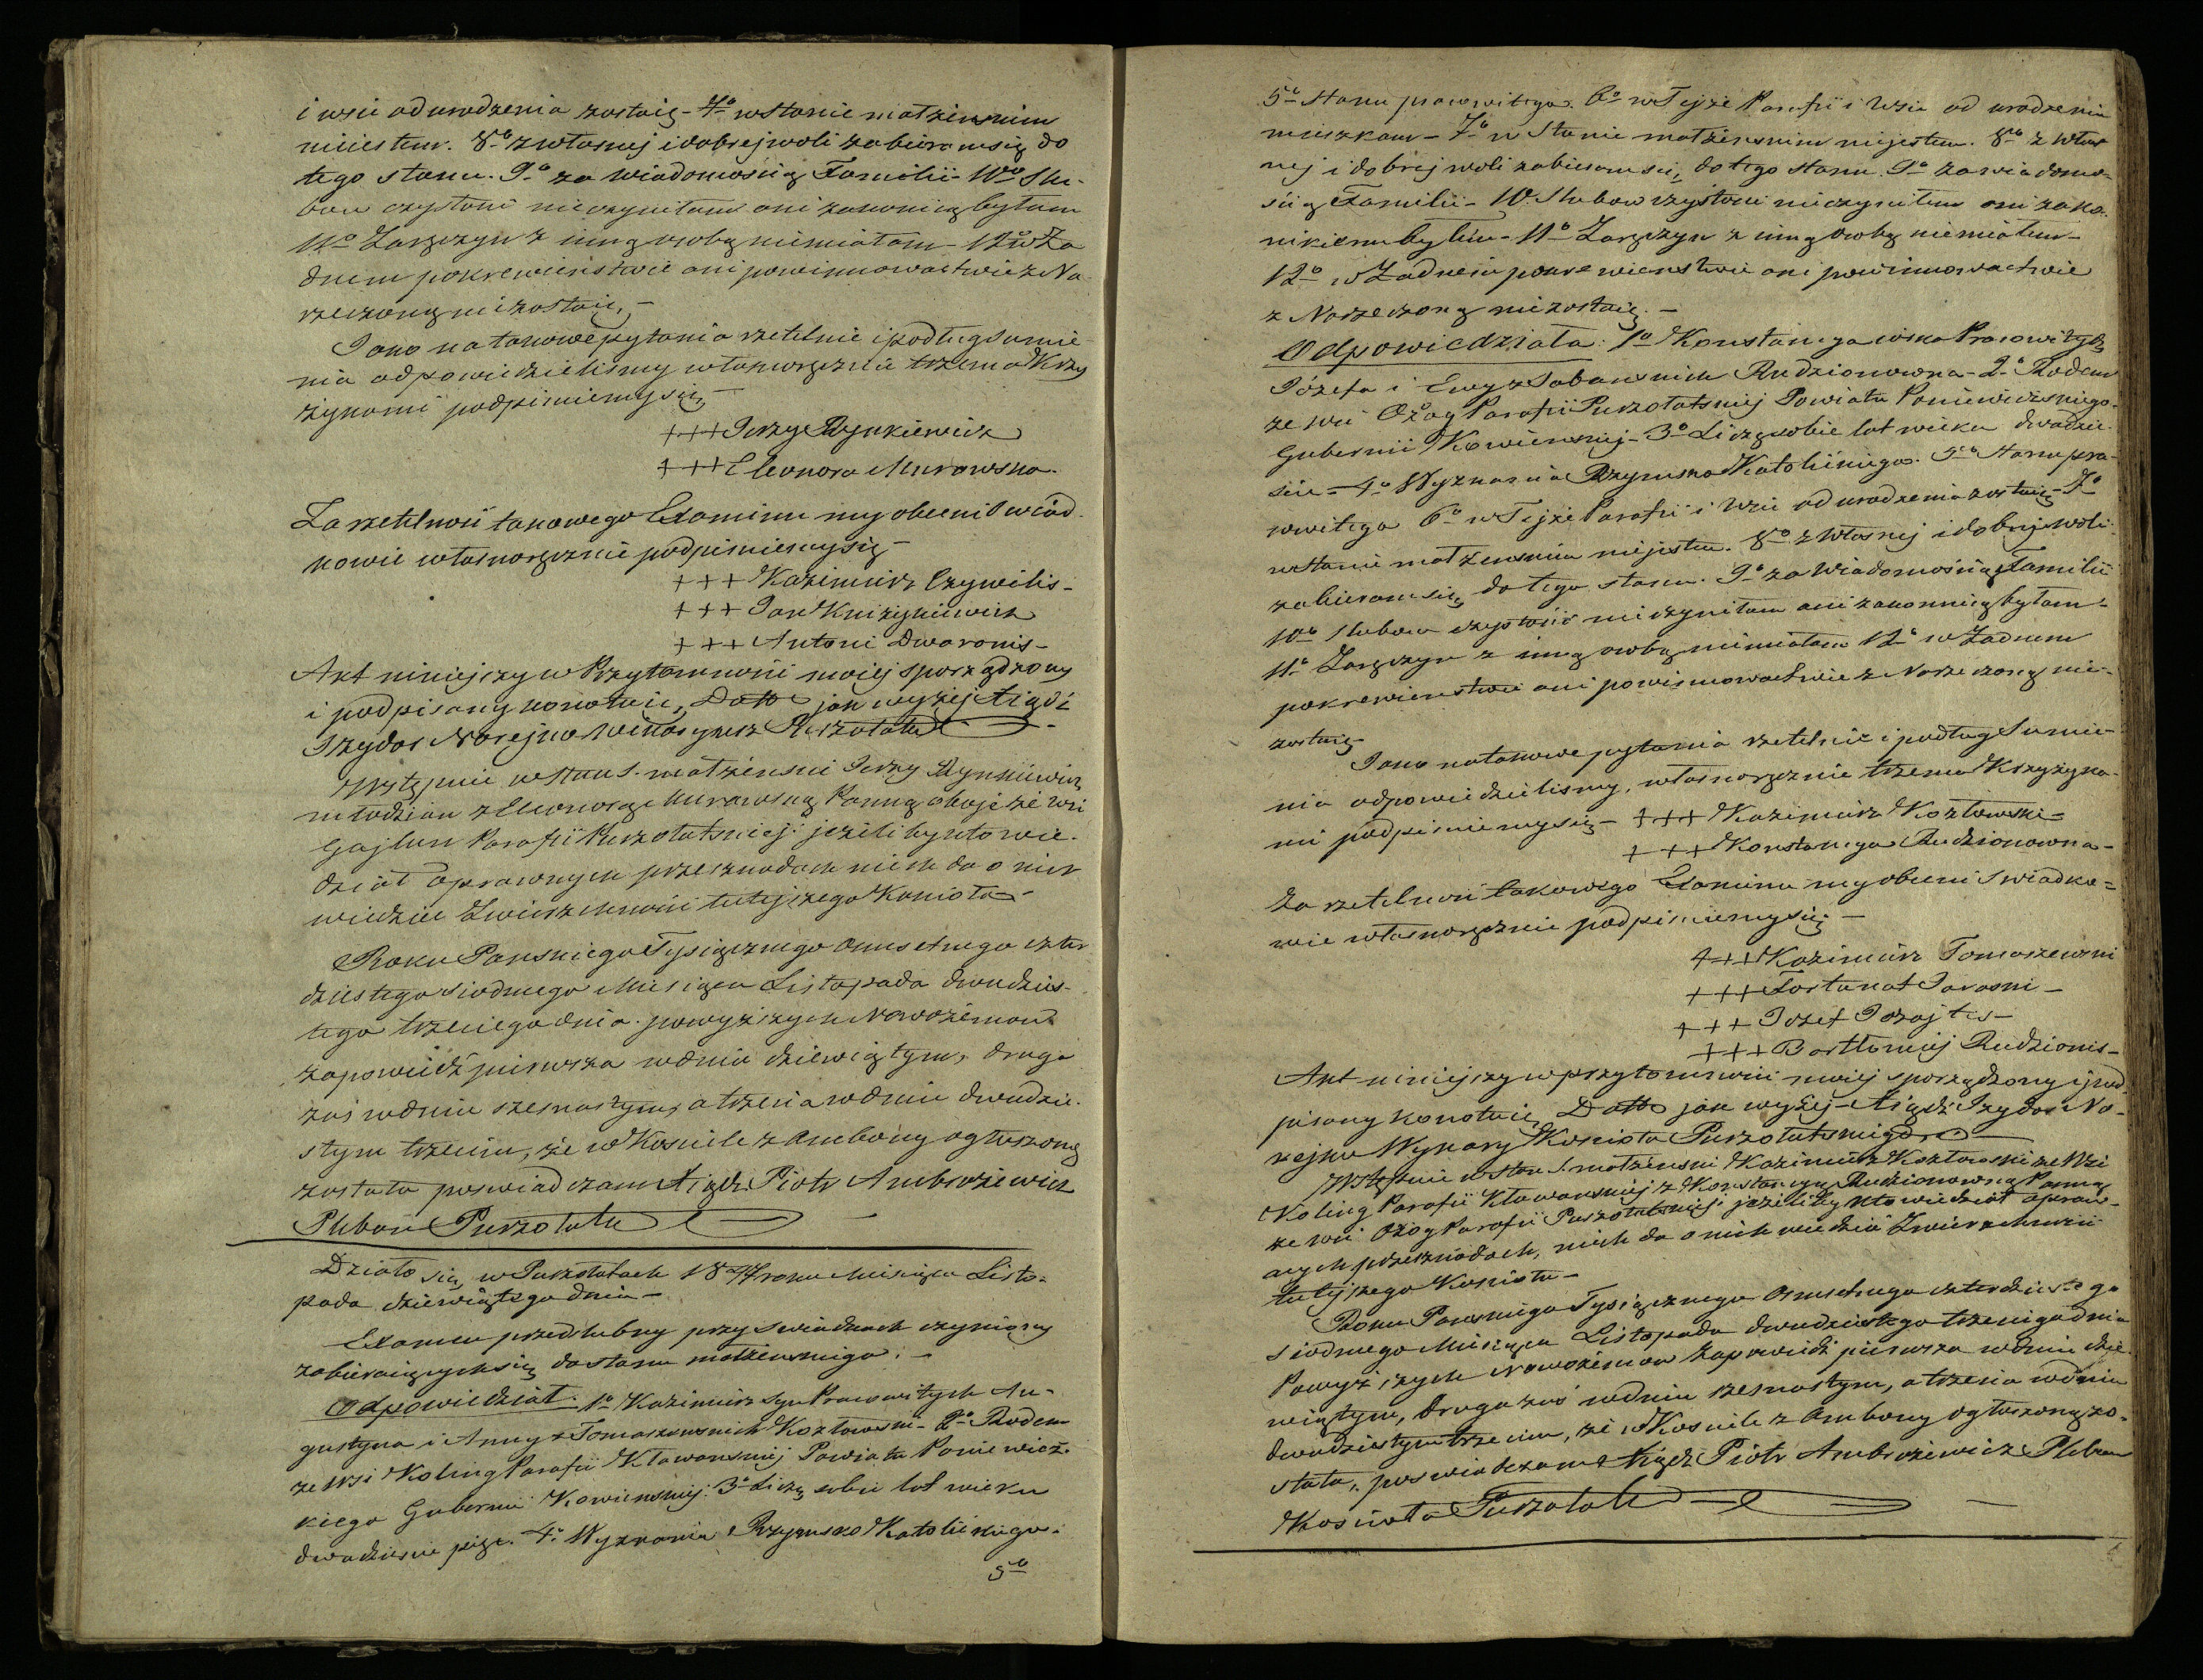 i wsie od urodzenia zostaię - 7o w Stanie małżenskim
nieiestem. 8o z własnej i dobrej woli zabieram się do
tego stanu. 9o za wiadomością Familii - 10o Slu-
bow czystoni nieczyniłam ani zakonicą byłam
11o Zaręczyn z inną osobą niemiałam - 12o w Ża
dnem pokrewieństwie ani powinnowactwie z Na-
rzeczonym niezostaię. -
Jako na takowe pytania rzetelnie i podług Sumie-
nia odpowiedzielismy własnoręcznie trzema Krzy
żykami podpisuiemy się -
+++ Jerzy Rynkiewicz
+++ Eleonora Murawska.
Za rzetelność takowego Examinu my obecni Swiad-
kowie własnoręcznie podpisuiemy się -
+++ Kazimierz Czywilis -
+++ Jan Kniżykiewicz
+++ Antoni Dwaronis -
Akt niniejszy w Przytomności moiej sporządzony
i podpisany konotuię, Datto jak wyżej Xiądz
Izydor Norejko Wikaryusz Puszołatu
Wstępuie w Stan S. małżenski Jerzy Rynkiewicz
młodzian z Eleonorą Murawską Panną oboje ze wsi
Gajlun Parafii Puszołatskiej: jeżeli by kto wie-
dział o prawnych przeszkodach niech da o nich
wiedzieć Zwierzchności tutejszego Koscioła -
Roku Panskiego Tysiącznego Osmsetnego czter
dziestego siodmego Miesiąca Listopada dwudzies-
tego trzeciego dnia. powyższych Nowożencow
zapowiedź pierwsza w dniu dziewiątym, druga
zaś w dniu szesnastym, a trzecia w dniu dwudzie-
stym trzecim, że w Kosciele z Ambony ogłoszoną
została poswiadczam Xiądz Piotr Ambrożewicz
Pleban Puszołatu
Działo się w Puszołatach 1847 roku Miesiąca Listo-
pada dziewiątego dnia -
Examen przedślubny przy Swiadkach czyniony
zabieraiących się do stanu małżenskiego. -
Odpowiedział: 1o Kazimierz Syn Pracowitych Au-
gustyna i Anny z Tomaszewskich Kozłowski - 2o Rodem
ze Wsi Koling Parafii Kławanskiej Powiatu Poniewież-
kiego Gubernii Kowienskiej. 3o Liczę sobie lat wieku
dwadziescie pięc. 4o Wyznania Rzymsko Katolickiego.
5o
5o Stanu pracowitego. 6o w Tejże Parafii i Wsie od urodzenia
mieszkam - 7o w Stanie małżenskim niejestem. 8o z włas
nej i dobrej woli zabieram się, do tego stanu. 9o za wiadomo-
scią Familii - 10. Slubow czystoni nieczyniłem ani zako-
nikiem byłem - 11o Zaręczyn z inną osobą niemiałem -
12o w Żadnem pokrewienstwie ani powinnowactwie
z Narzeczoną niezostaię. -
Odpowiedziała: 1o Konstancya corka Pracowitych
Józefa i Ewy z Sabanskich Rudzionowna - 2o Rodem
ze wsi Ożag Parafii Puszołatskiej Powiatu Poniewiezkiego
Gubernii Kowienskiej - 3o Liczę sobie lat wieku dwadzie-
scie - 4o Wyznania Rzymsko Katolickiego. 5o Stanu pra-
cowitego 6o w Tejże Parafii i Wsie od urodzenia zostaię - 7o
w Stanie małżenskim niejestem. 8o z własnej i dobrej woli
zabieram się, do tego stanu. 9o za Wiadomością Familii
10o Slubow czystości nieczyniłam ani zakonnicą byłam -
11o Zaręczyn z inną osobą niemiałam 12o w Żadnem
pokrewienstwie ani powinnowactwie z Narzeczonym nie-
zostaię
Jako na takowe pytania rzetelnie i podług Sumie-
nia odpowiedzielismy, własnoręcznie trzema Krzyżyka-
mi podpisuiemy się - +++ Kazimierz Kozłowski -
+++ Konstancya Rudzionowna -
Za rzetelność takowego Examinu my obecni Swiadko=
wie własnoręcznie podpisuiemy się: -
+++ Kazimierz Tomaszewski
+++ Fortunat Sarasni -
+++ Jozef Jozajtis -
+++ Bartłomiej Rudzionis -
Akt niniejszy w przytomności moiej sporządzony i pod
pisany konotuię, Datto jak wyżej - Xiądz Izydor No-
rejko Wykary Koscioła Puszołatskiego
Wstępuie w Stan S. małżenski Kazimierz Kozłowski ze Wsi
Koling Parafii Kławanskiej z Konstancyą Rudzionowną Panną
ze wsi Ożog Parafii Puszołatskiej: jeżeli by kto wiedział o praw-
nych przeszkodach, niech da o nich wiedzieć Zwierzchności
tutejszego Koscioła -
Roku Panskiego Tysiącznego Osmsetnego czterdziestego
siodmego Miesiąca Listopada dwudziestego trzeciego dnia
Powyższych Nowożencow Zapowiedź pierwsza w dniu dzie-
wiątym, druga zaś w dniu szesnastym, a trzecia w dniu
dwudziestym trzecim, że w Kosciele z Ambony ogłoszoną zo-
stała, poswiadczam Xiądz Piotr Ambrożewicz Pleban
Koscioła Puszołatu